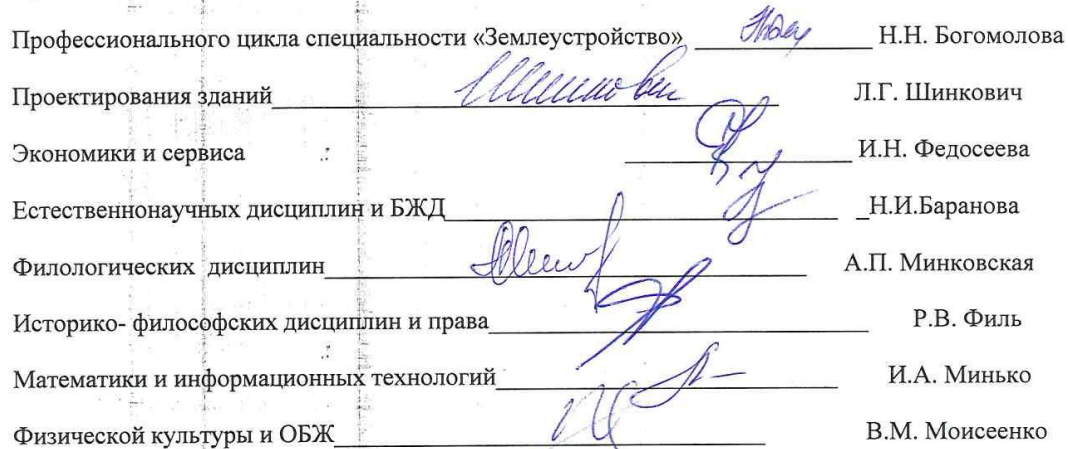 Профессионального цикла специальности «Землеустройство» Н.Н. Богомолова
Проектирования зданий Л.Г. Шинкович
Экономики и сервиса И.Н. Федосеева
Естественнонаучных дисциплин и БЖД _Н.И.Баранова
Филологических дисциплин А.П. Минковская
Историко- философских дисциплин и права Р.В. Филь
Математики и информационных технологий И.А. Минько
Физической культуры и ОБЖ В.М. Моисеенко